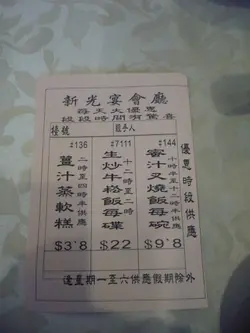 新光宴會廳
每天大優惠
段段時間有驚喜
檯號
經手人
優惠時段供應
#144
十時半至十二時半供應
蜜汁叉燒飯每碗
$9·8
#7111
十二時至二時供應
生炒牛崧飯每碟
$22
#136
二時至四時半供應
薑汁蒸軟糕
$3·8
逢星期一至六供應假期除外